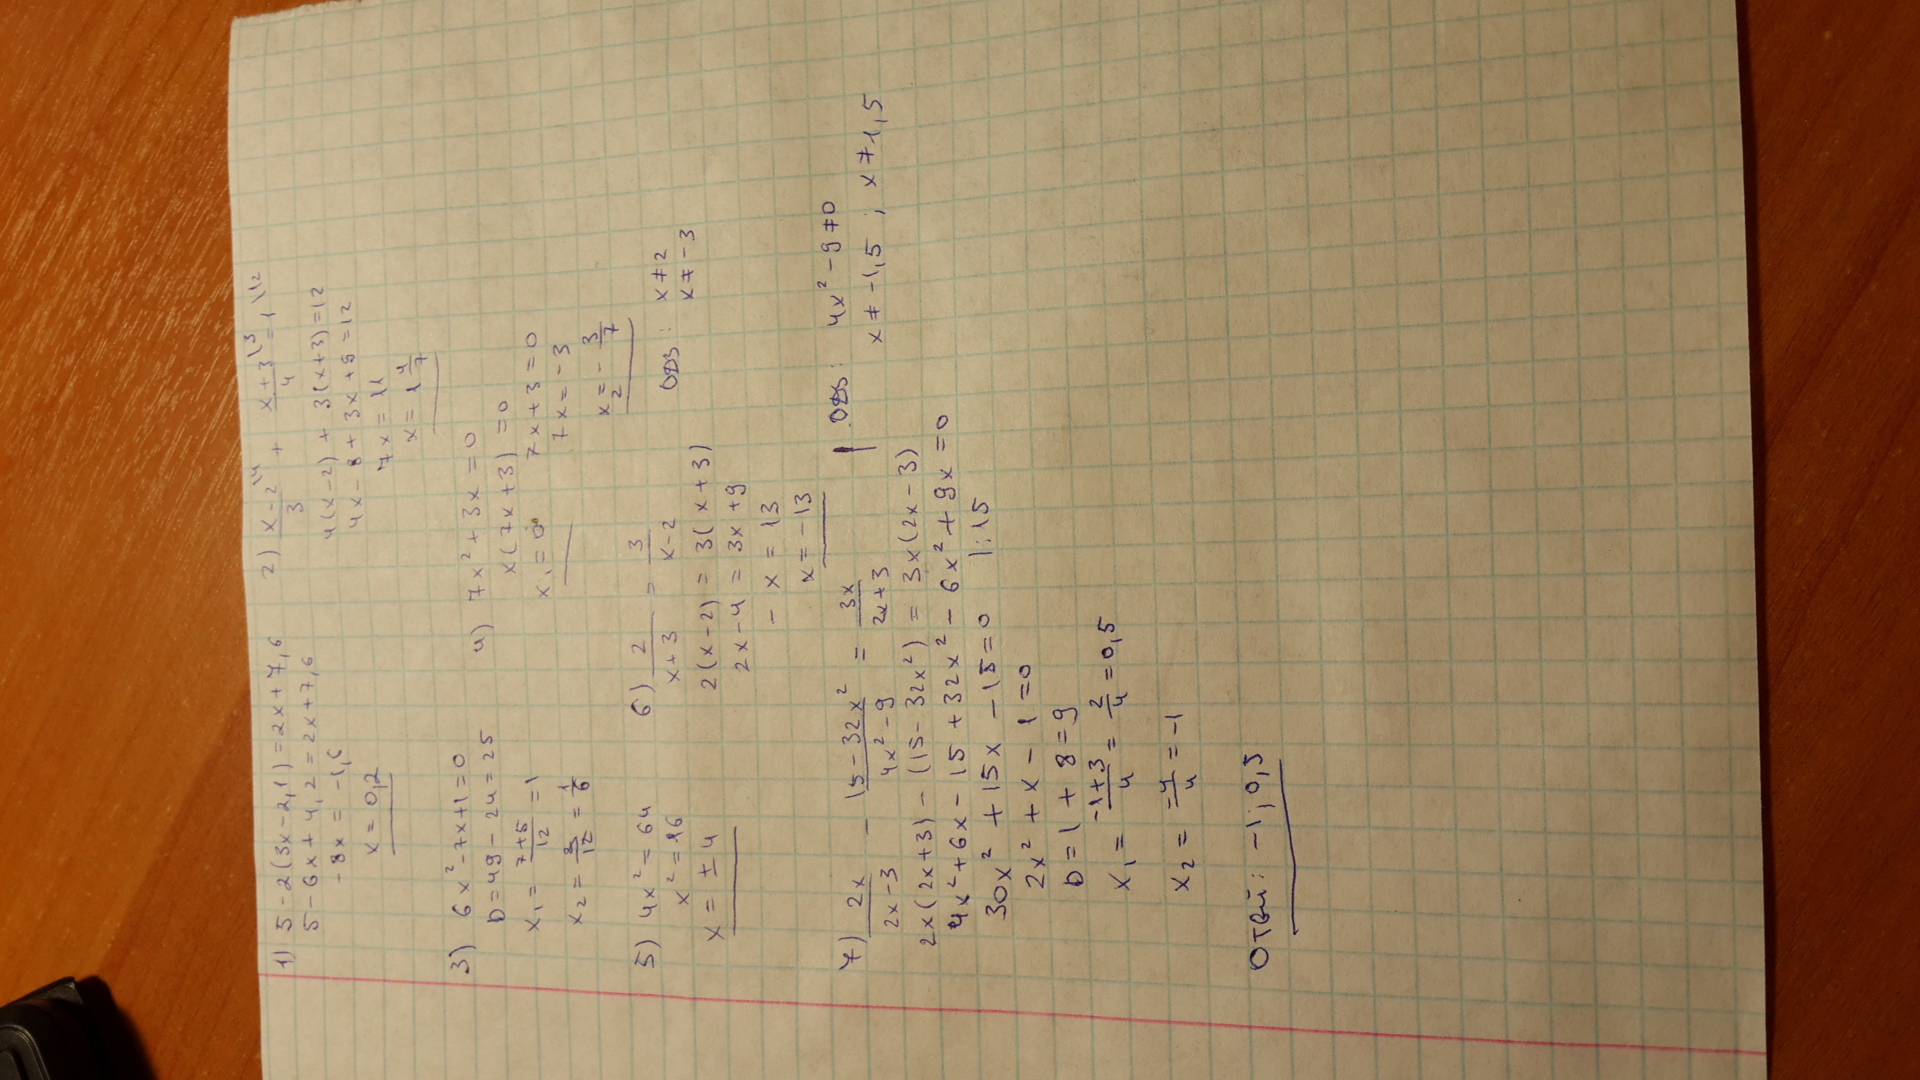 1) 5 - 2(3x - 2,1) = 2x + 7,6
5 - 6x + 4,2 = 2x + 7,6
- 8x = - 1,6
x = 0,2
2) (x-2)/3 \4 + (x+3)/4 \3 = 1 \12
4(x-2) + 3(x+3) = 12
4x - 8 + 3x + 9 = 12
7x = 11
x = 1 4/7
3) 6x² - 7x + 1 = 0
D = 49 - 24 = 25
x₁ = (7+5)/12 = 1
x₂ = 2/12 = 1/6
4) 7x² + 3x = 0
x(7x+3) = 0
x₁ = 0 7x + 3 = 0
7x = - 3
x₂ = - 3/7
5) 4x² = 64
x² = 16
x = ± 4
6) 2/(x+3) = 3/(x-2) ОДЗ: x ≠ 2
x ≠ - 3
2(x-2) = 3(x+3)
2x - 4 = 3x + 9
- x = 13
x = - 13
7) 2x/(2x-3) - (15-32x²)/(4x²-9) = 3x/(2x+3) | ОДЗ: 4x² - 9 ≠ 0
x ≠ -1,5 ; x ≠ 1,5
2x(2x+3) - (15 - 32x²) = 3x(2x-3)
4x² + 6x - 15 + 32x² - 6x² + 9x = 0
30x² + 15x - 15 = 0 |:15
2x² + x - 1 = 0
D = 1 + 8 = 9
x₁ = (-1+3)/4 = 2/4 = 0,5
x₂ = -4/4 = -1
Ответ: -1; 0,5